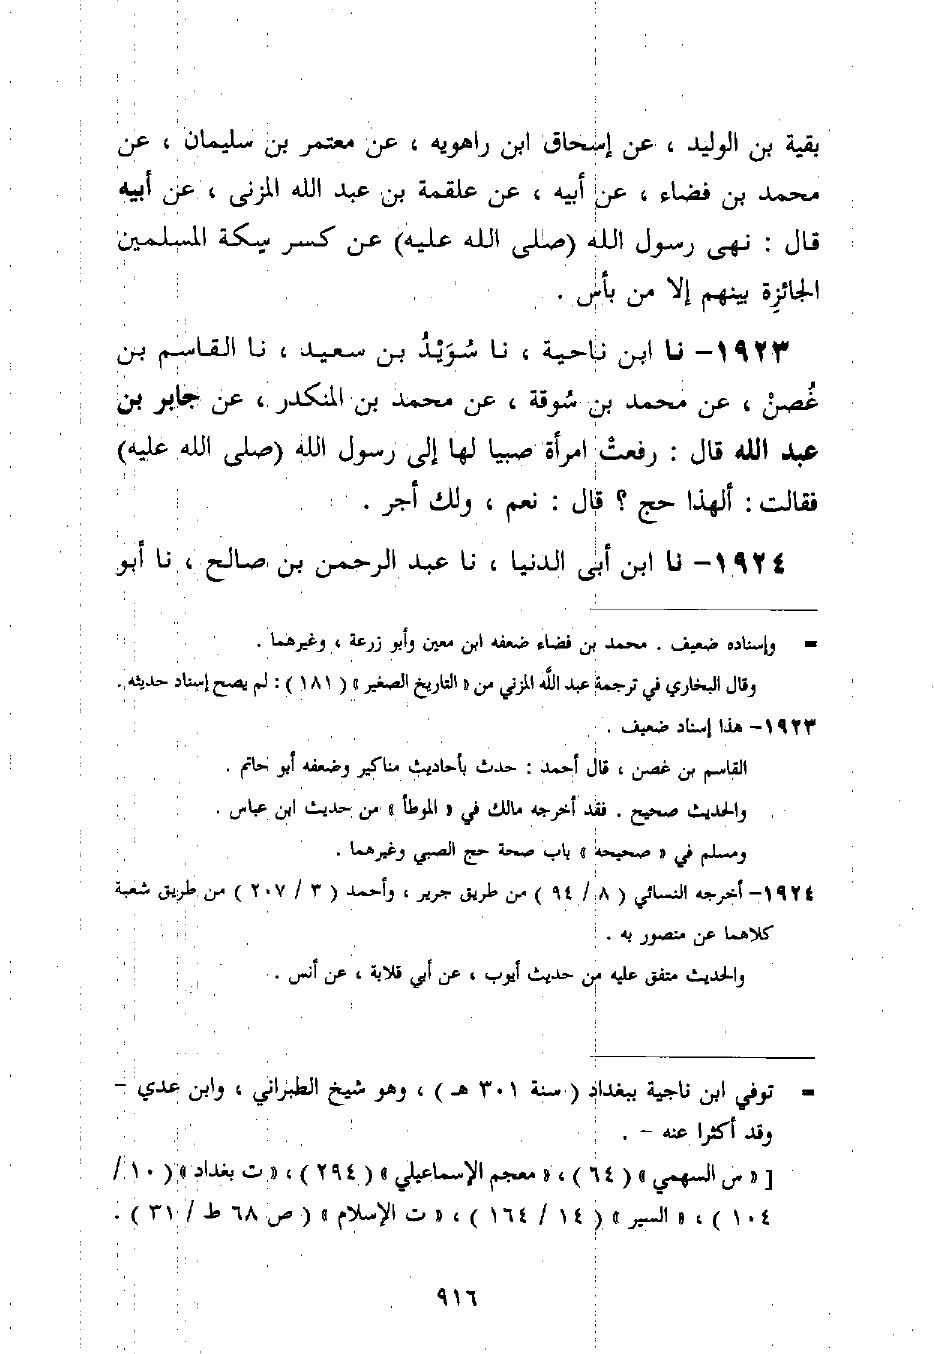 بقية بن الوليد ، عن إسحاق ابن راهويه ، عن معتمر بن سليمان ، عن
محمد بن فضاء ، عن أبيه ، عن علقمة بن عبد الله المزنى ، عن أبيه
قال : نهى رسول الله (صلى الله عليه) عن كسر سكة المسلمين
الجائزة بينهم إلا من بأس .
١٩٢٣- نا ابن ناحية ، نا سُوَيْدُ بن سعيد ، نا القاسم بن
غُصنْ ، عن محمد بن سُوقة ، عن محمد بن المنكدر ، عن جابر بن
عبد الله قال : رفعتْ امرأة صبيا لها إلى رسول الله (صلى الله عليه)
فقالت : ألهذا حج ؟ قال : نعم ، ولك أجر .
١٩٢٤- نا ابن أبى الدنيا ، نا عبد الرحمن بن صالح ، نا أبو
= وإسناده ضعيف . محمد بن فضاء ضعفه ابن معين وأبو زرعة ، وغيرهما .
وقال البخاري في ترجمة عبد اللَّه المزني من « التاريخ الصغير » ( ١٨١ ) : لم يصح إسناد حديثه .
١٩٢٣- هذا إسناد ضعيف .
القاسم بن غصن ، قال أحمد : حدث بأحاديث مناكير وضعفه أبو حاتم .
والحديث صحيح . فقد أخرجه مالك في « الموطأ » من حديث ابن عباس .
ومسلم في « صحيحه » باب صحة حج الصبي وغيرهما .
١٩٢٤- أخرجه النسائي ( ٨ / ٩٤ ) من طريق جرير ، وأحمد ( ٣ / ٢٠٧ ) من طريق شعبة
كلاهما عن منصور به .
والحديث متفق عليه من حديث أيوب ، عن أبي قلابة ، عن أنس .
= توفي ابن ناجية ببغداد ( سنة ٣٠١ هـ ) ، وهو شيخ الطبراني ، وابن عدي -
وقد أكثرا عنه - .
[ « س السهمي » ( ٦٤ ) ، « معجم الإسماعيلي » ( ٢٩٤ ) ، « ت بغداد » ( ١٠ /
١٠٤ ) ، « السير » ( ١٤ / ١٦٤ ) ، « ت الإسلام » ( ص ٦٨ ط / ٣١ ) .
٩١٦